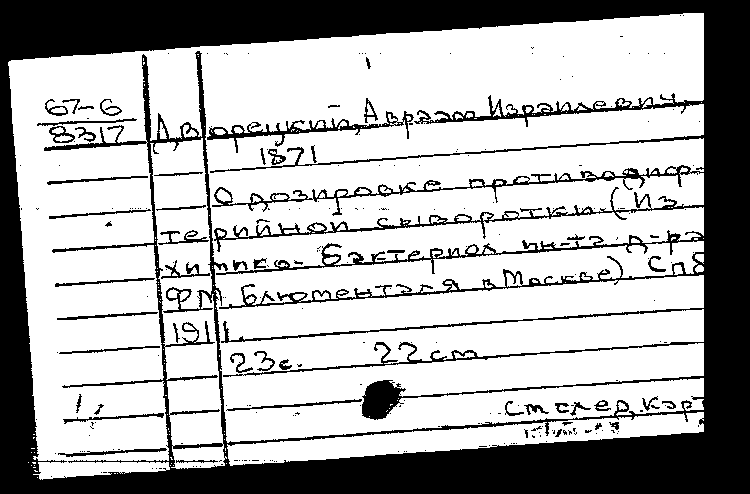 67-6
8317
Дворецкий, Авраам Израилевич,
1871
О дозировке противодиф-
терийной сыворотки. (Из
химико-бактериол. ин-та д-ра
Ф.М. Блюменталя в Москве). Спб
1911.
23с. 22 cm.
1,
См след. карт